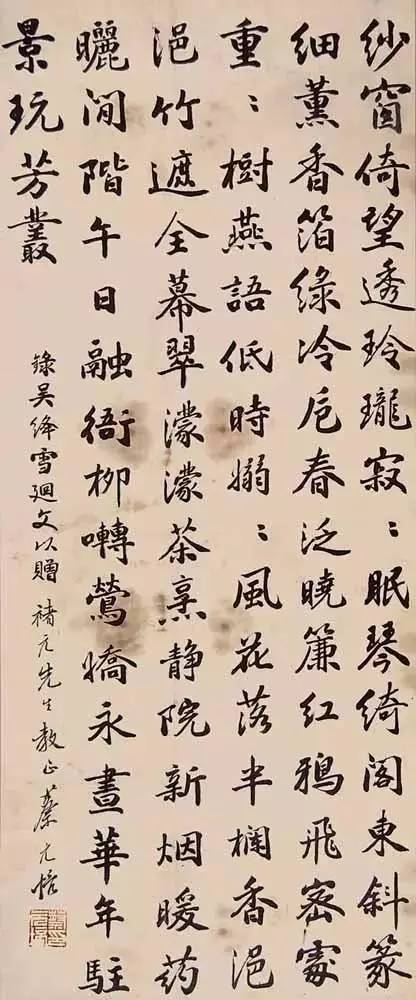 紗窗倚望透玲瓏寂〻眠琴綺閣東斜篆
細薰香箔綠冷巵春泛曉簾紅鴉飛密處
重〻樹燕語低時嫋〻風花落半欄香浥
浥竹遮全幕翠濛濛茶烹静院新烟暖葯
曬閒階午日融衙柳囀鶯嬌永晝華年駐
景玩芳叢
錄吳絳雪廻文以贈 先生教正 蔡元培